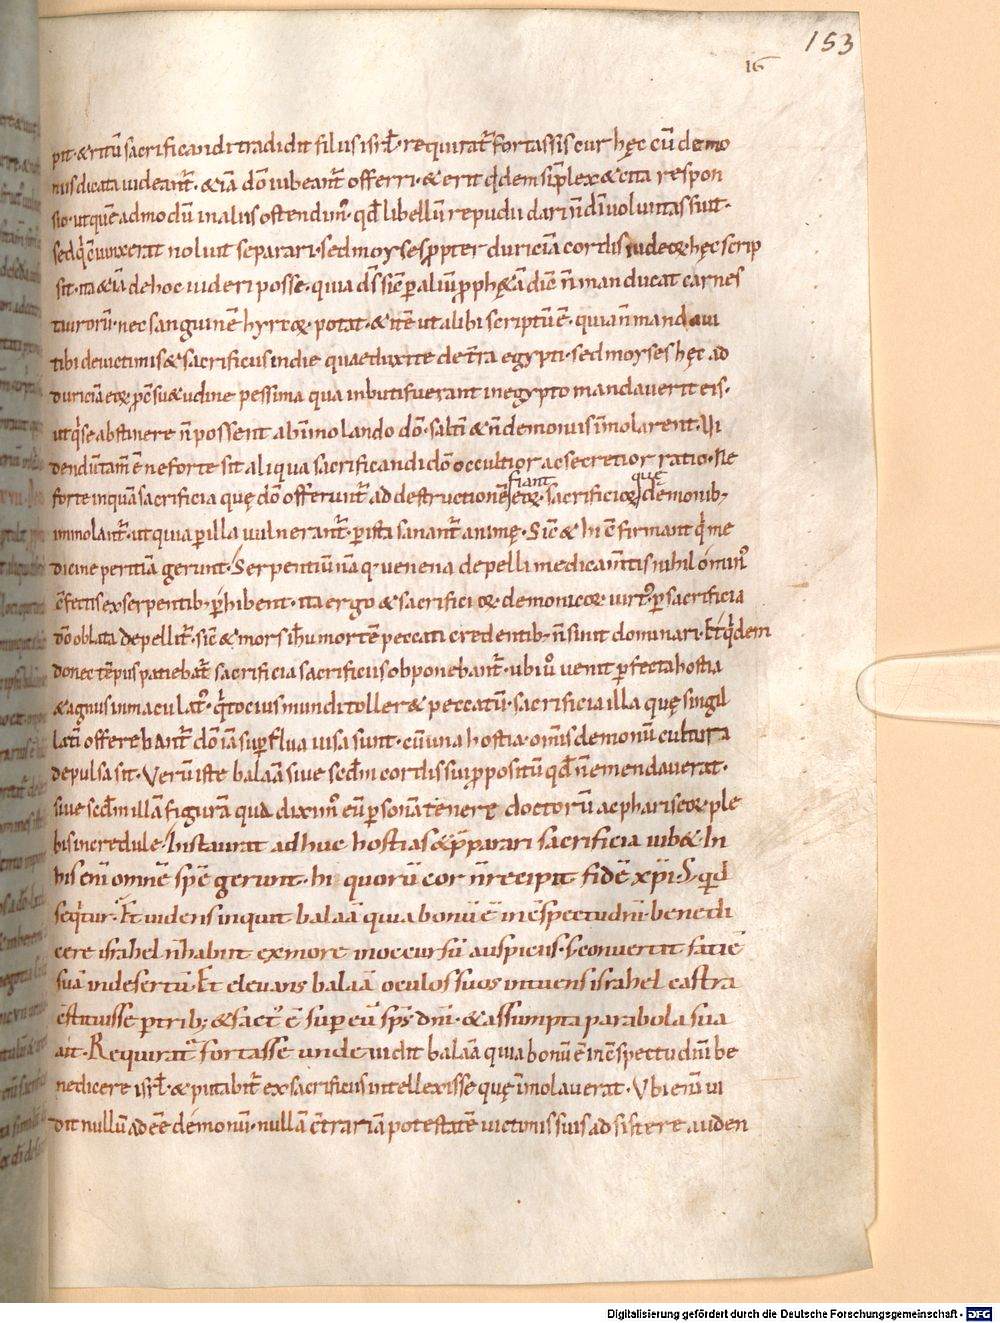 153
16
pit·&ritū sacrificandi tradidit filiis isrł·requirat̄ fortassis cur hęc cū demo
niis dicata uideant̄·&iā dō iubeant̄ offerri·&erit q̄dem sīplex&cita respon
sio·utquēadmodū in aliis ostendim᾿·qđ libellū repudii dari n̄ dī uoluntas fuit·
sed q̄ iunxerat noluit separari·sed moyses ꝓpter duriciā cordis iudeoꝝ hęc scrip
sit·ita&iā de hoc uideri posse·quia d̄s sic̄ ꝑ aliū ꝓph&ā dic̄ n̄ manducat carnes
tauroru·nec sanguinē hyrcoꝝ potat·&itē ut alibi scriptū ē·quia n̄ mandaui
tibi de uictimis&sacrificiis in die qua eduxi te de t̄ra egypti·sed moyses hęc ad
duriciā eoꝝ ꝓ c̄su&udine pessima qua inbuti fuerant in egypto mandauerit eis·
ut q̄ se abstinere n̄ possent ab īmolando dō·saltī &n̄ demoniis īmolarent·Ui
dendū tam̄ ē ne forte sit aliqua sacrificandi dō occultior ac secretior ratio·Ne
fiant quę
forte inquā sacrificia quę dō offerunt̄ ad destructionē eoꝝ·sacrificioꝝ demonib;
immolant̄·ut quia ꝑ illa uulnerant̄·ꝑ ista sanant̄ animę·Sic̄ & hi c̄firmant q̄ me
dicine peritiā gerunt·Serpentiū nāq· uenena depelli medicam̄tis nihilomin᾿
c̄fectis ex serpentib; ꝑhibent·ita ergo & sacrificioꝝ demonicoꝝ uirt᾿ ꝑ sacrificia
dō oblata depellit̄·sic̄ & mors ih̄u mortē peccati credentib; n̄ sinit dominari·Et q̄dem
donec tēpus patiebat̄ sacrificia sacrificiis obponebant̄·ubi u᾿ uenit ꝑfecta hostia
&agnus inmaculat᾿·q̄ tocius mundi toller& peccatū·sacrificia illa quę singil
latī offerebant̄ dō iā suꝑflua uisa sunt·cū una hostia·omīs demonū cultura
depulsa sit·Verū iste balaā siue scd̄m cordis sui ꝓpositū qđ n̄ emendauerat·
siue scd̄m illā figurā qua dixim᾿ eū ꝑsonā tenere doctorū ac phariseoꝝ ple
bis incredule·Instaurat adhuc hostias&p̄parari sacrificia iub& In
his enī omnē spē gerunt·hi quorū cor n̄ recipit fidē xp̄i·S· qđ
seq̄tur·Et uidens inquit balaā quia bonū ē in c̄spectu dn̄i·benedi
cere israhel n̄ habiit ex more in occursū auspiciis·&conuertit fatiē
suā in desertū·Et eleuans balaā oculos suos intuens israhel castra
c̄stituisse ꝑ trib; &fact᾿ ē super eū sp̄s dn̄i·&assumpta parabola sua
ait·Requirat̄ fortasse unde uidit balaā quia bonū ē in c̄spectu dn̄i be
nedicere isrł·&putabit̄ ex sacrificiis intellexisse quę īmolauerat·Vbi enī ui
dit nullū adēē démonū·nullā c̄trariā potestatē uictimis suis adsistere auden
Digitalisierung gefördert durch die Deutsche Forschungsgemeinschaft - DFG